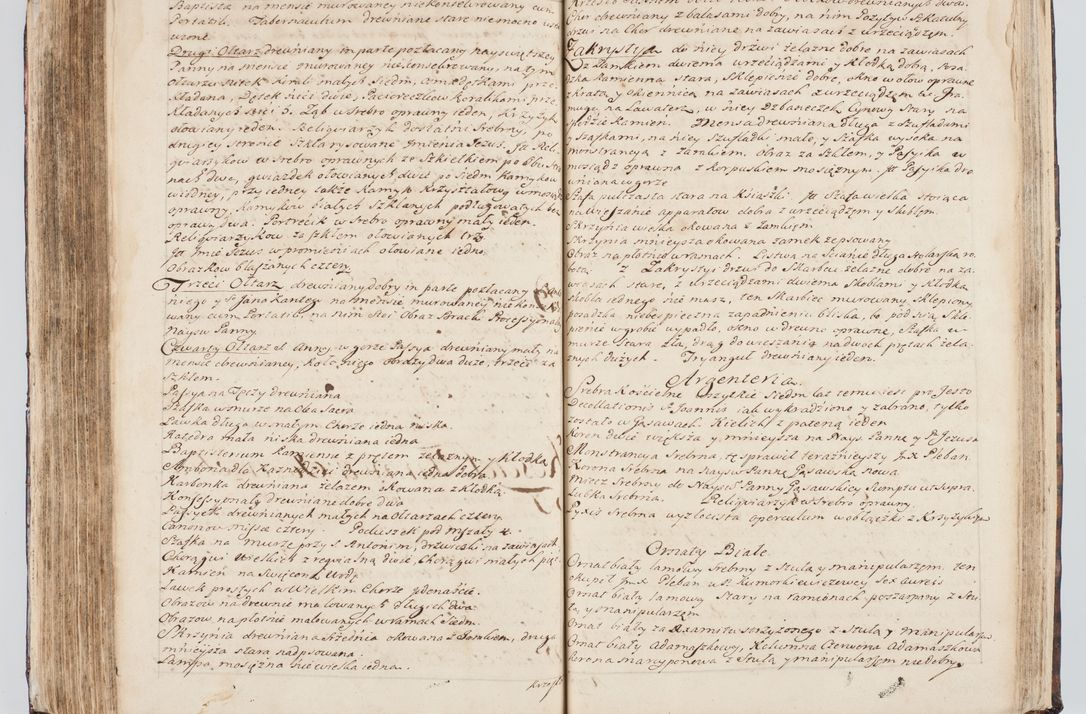 Baptista na mensie murowaney niekonsekrowaney cum
Portatili. Tabernaculum drewniane stare niemocno usz
czone
Drugi Oltarz drewniany in parte pozłacany nayswiętszey
Panny na mensie murowaney niekonsekrowany, na tym
ołtarzu sztuk korali małych siedm,
kładana, Pacioreczkow koralikami prze
kładanych 5. Ząb w srebro oprawny ieden, Krzyzyk
ołowiany ieden. Religwiarzyk dostatni srebrny, po
drugiey stronie szklarysowane Imienia Jezus. It Reli
gwiarzykow w srebro oprawnych ze szkiełkiem po obu stro
nach dwa, gwiazdek ołowianych dwie po siedm kamykow
w iedney, przy iedney także kamyk krzyształowy w mosiądz
oprawny, kamykow białych szklanych podługowatych bez
oprawy dwa. Portrecik w srebro oprawny mały ieden.
Religwiarzykow za szkłem ołowianych trzy
It Imie Jezus w promieniach ołowiane iedno
Obrazkow blaszanych cztery
Trzeci Ołtarz drewniany dobry in parte pozłacany
niego y S. Jana Kantego na mensie murowaney niekonse
wany cum Portatili. na nim stoi Obraz Bracki Processyonalny
Naysw Panny.
Czwarty Ołtarz S Anny w gorze Passya drewniany mały na
mensie drewnianey, koło niego obrazy dwa duze, trzeci za
szkłem.
Passya na Tęczy drewniana
Szafka w murze na Olea Sacra
Ławka długa w małym Chorze iedna niska.
Katedra mała niska drewniana iedna
Baptisterium kamienne z prętem żelaznym y kłodką
Ambona dla Kaznodziei drewniana iedna dobra
Karbonka drewniana żelazem okowana z kłodką.
Konfessyonały drewniane dobre dwa
Passyek drewnianych małych na Ołtarzach cztery
Canonow missae cztery. Poduszek pod mszały 4.
Szafka na murze przy S Antonim, drzwiczki na zawiasach
Chorągwi wielkich z rezwalną dwie, chorągwi małych pięć
Kamień na swięconą wodę
Ławek prostych w wielkim Chorze iedenaście.
Obrazow na drewnie malowanych długich dwa
Obrazow na płotnie malowanych w ramach siedm.
Skrzynia drewniana szrednia okowana z zamkiem, druga
mnieysza stara nadpsowana.
Lampa mosiężna niewielka iedna.
krzesł

Chor drewniany z balasami dobry, na nim Pozytyw szkatulny
drzwi na Chor drewniane na zawiasach z wrzeciądzem.
Zakrystya do niey drzwi żelazne dobre na zawiasach
z zamkiem dwiema wrzeciądzami y kłodką dobrą. Posa
dzka kamienna stara, sklepienie dobre, okno w ołow oprawne
z kratą y okiennicą na zawiasach z wrzeciądzem w fra
mugą na Lawaterz, w niey dzbaneczek cynowy stary na
spodzie kamień. Mensa drewniana długa z szufladami
y szafkami, na niey szufladki małe, y szafka wysoka na
monstrancyą z zamkiem. Obraz za szkłem, y Passyika w
mosiądz oprawna z korpuskiem mosiężnym. It Passyika dre
wniana w gorze
Szafa pulchrasta stara na Książki. It Szafa wielka stoiąca
na wieszanie apparatow dobra z wrzeciądzem y skoblem.
Skrzynia wielka okowana z zamkiem.
Skrzynia mnieysza okowana zamek zepsowany
Obraz na płotnie w ramach. Listwa na ścianie długa stolarska ro
bota. Z Zakrystyi drzwi do Skarbcu żelazne dobre na za
wiasach stare, z wrzeciądzami dwiema skoblami y kłodką
skobla iednego nie masz, ten Skarbiec murowany sklepiony
posadzka niebezpieczna zapadnieniu bliska, bo pod nią skle
pienie w grobie wypadło, okno w drewno oprawne, szafka w
murze stara zła, drąg do wieszania na dwoch prętach żela
znych duzych. Tryanguł drewniany ieden.
Argenteria.
Srebra Kościelne wszytkie siedm laz temu iest pr. Festo
Decollationis S Joannis iak wykradziono y zabrano, tylko
zostało w Jasawach. Kielich z pateną ieden
Koron dwie większa y mnieysza na Nays. Pannę y P Jezusa
Monstrancya srebrna, tę sprawił teraznieyszy JmX Pleban.
Korona srebrna na Naysw Pannę Jasawska nowa.
Miecz srebrny do Naysw Panny Jasawskiey sumptu ut supra.
Łubka srebrna. Religwiarzyk w srebro oprawny.
Pyxis srebrna wyzłocista operculum w obłączki z krzyzykiem
Ornaty Białe.
Ornat biały lamowy srebrny z stułą y manipularzem ten
okupił JmX Pleban u P. Kumorkiewiczowey sex aureis
Ornat biały lamowy stary na ramionach poszarpany z stu
łą, y manipularzem
Ornat biały za axamitu strzyzonego z stułą y manipularzem
Ornat biały adamaszkowy, kolumna czerwona adamaszkowa
korona marcypanowa z stułą y manipularzem nie dobry